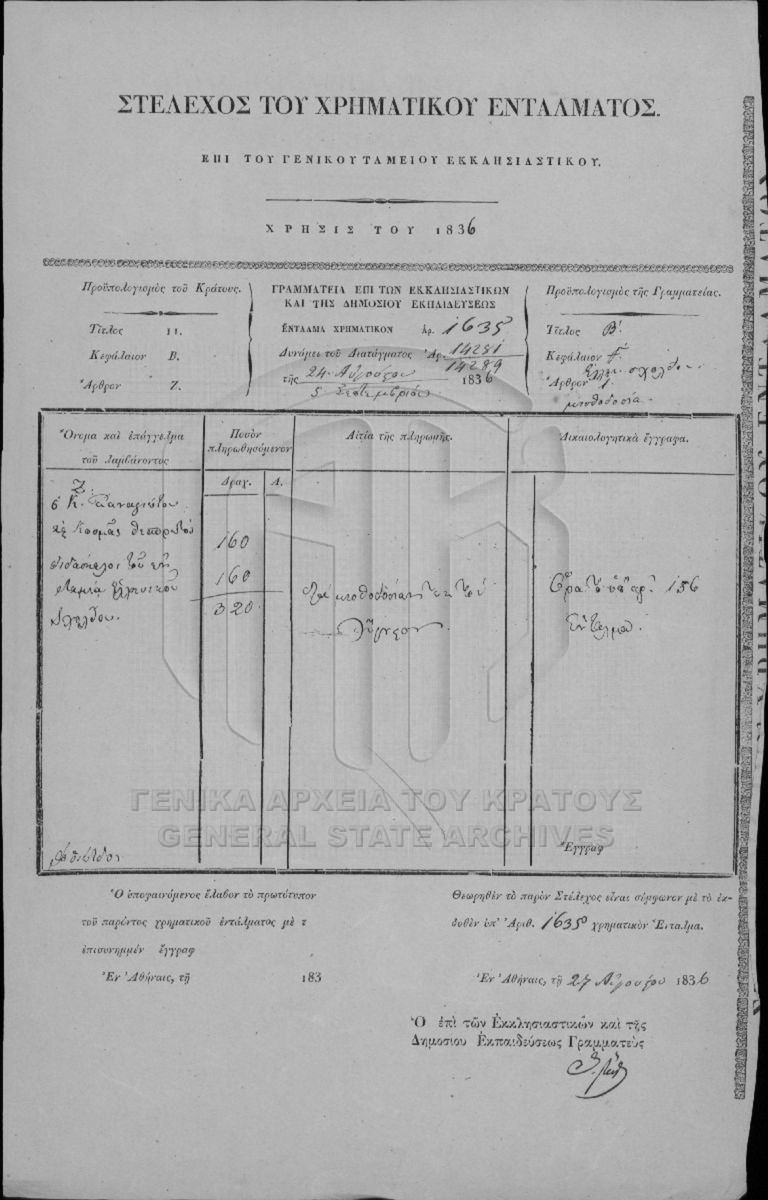 ΣΤΕΛΕΧΟΣ ΤΟΥ ΧΡΗΜΑΤΙΚΟΥ ΕΝΤΑΛΜΑΤΟΣ.
ΕΠΙ ΤΟΥ ΓΕΝΙΚΟΥ ΤΑΜΕΙΟΥ ΕΚΚΛΗΣΙΑΣΤΙΚΟΥ.
ΧΡΗΣΙΣ ΤΟΥ 1836
Προϋπολογισμὸς τοῦ Κράτους.
Τίτλος ΙΙ.
Κεφάλαιον Β.
Ἄρθρον Ζ.
ΓΡΑΜΜΑΤΕΙΑ ΕΠΙ ΤΩΝ ΕΚΚΛΗΣΙΑΣΤΙΚΩΝ
ΚΑΙ ΤΗΣ ΔΗΜΟΣΙΟΥ ΕΚΠΑΙΔΕΥΣΕΩΣ
ΕΝΤΑΛΜΑ ΧΡΗΜΑΤΙΚΟΝ Ἀρ. 1635
Δυνάμει τοῦ Διατάγματος Ἀρ. 14231
14289
τῆς 24 Αὐγούστου 1836
5 Σεπτεμβρίου
Προϋπολογισμὸς τῆς Γραμματείας.
Τίτλος Β.
Κεφάλαιον
Ἄρθρον 1.
μισθοδοσία.
Ὄνομα καὶ ἐπάγγελμα
τοῦ λαμβάνοντος
Ποσὸν
πληρωθησόμενον
Αἰτία τῆς πληρωμῆς.
Δικαιολογητικὰ ἔγγραφα.
Δραχ. Λ.
160
160
320
διδάσκαλοι τοῦ ἐν
Λαμίᾳ ἑλληνικοῦ
Σχολείου.
156
Ἔνταλμα.
ΓΕΝΙΚΑ ΑΡΧΕΙΑ ΤΟΥ ΚΡΑΤΟΥΣ
GENERAL STATE ARCHIVES
Ἔγγραφ
Ὁ ὑποφαινόμενος ἔλαβον τὸ πρωτότυπον
τοῦ παρόντος χρηματικοῦ ἐντάλματος μὲ τ
ἐπισυνημμέν ἔγγραφ
Ἐν Ἀθήναις, τῇ 183
Θεωρηθὲν τὸ παρὸν Στέλεχος εἶναι σύμφωνον μὲ τὸ ἐκ-
δοθὲν ὑπ' Ἀριθ. 1635 χρηματικὸν Ἔνταλμα.
Ἐν Ἀθήναις, τῇ 27 Αὐγούστου 1836
Ὁ ἐπὶ τῶν Ἐκκλησιαστικῶν καὶ τῆς
Δημοσίου Ἐκπαιδεύσεως Γραμματεὺς